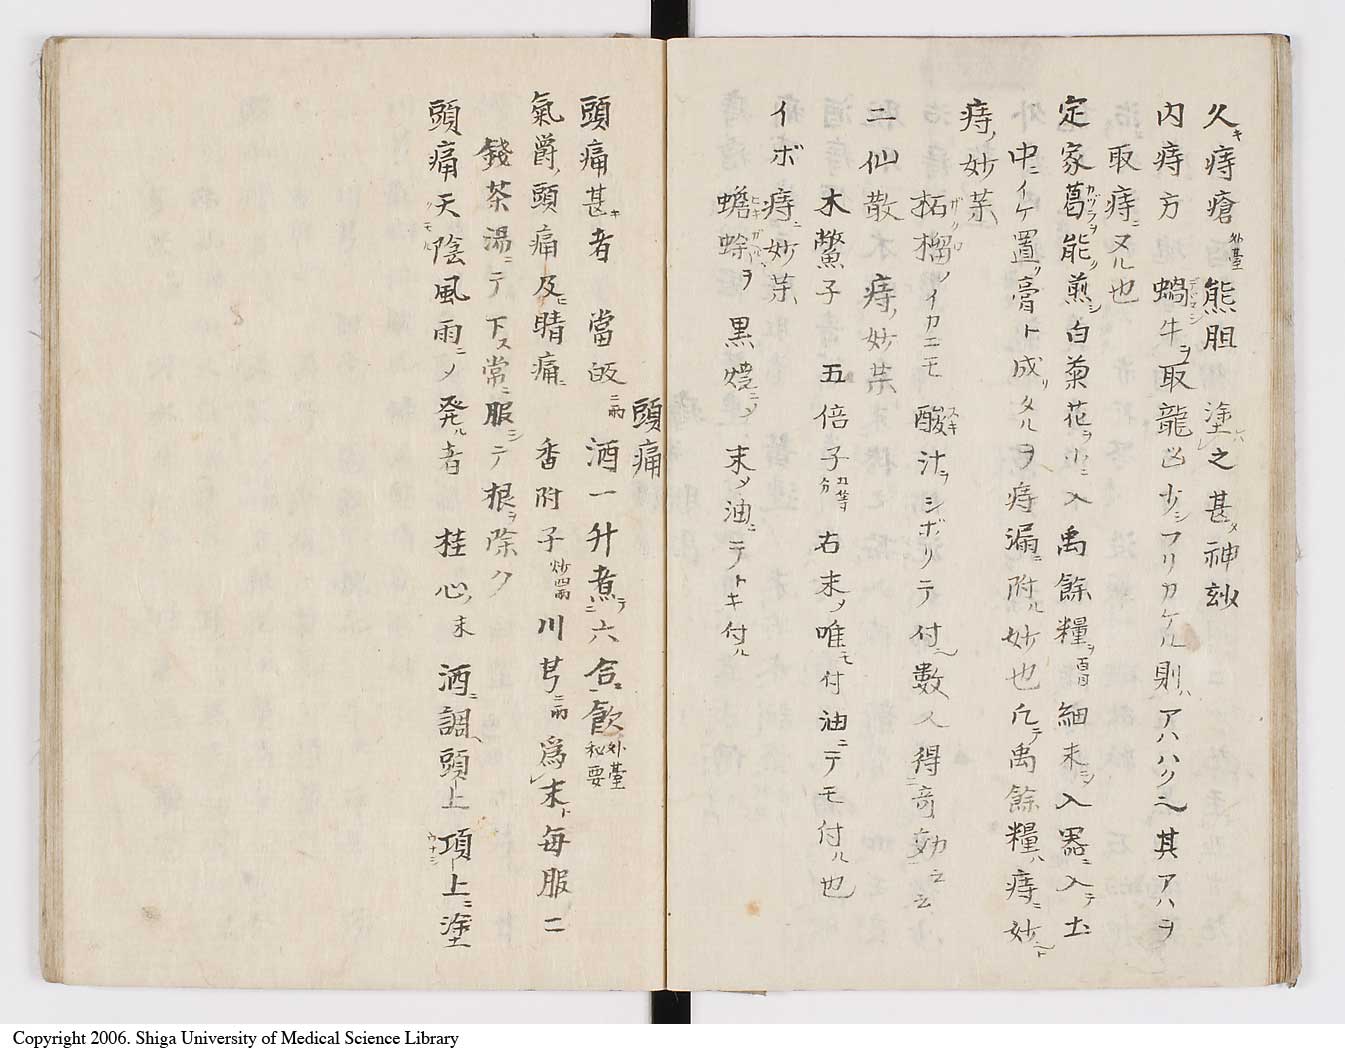 久キ痔瘡 外臺 熊胆 塗レハ之 甚タ神玅
内痔方 蝸牛ヲ取 龍凶 少シフリカケル則ハ アハハク云 其アハヲ
取 痔ニヌル也
定家葛ヲ能ク煎シ 白菊花ヲ少ニ入 禹餘糧ヲ 細末シ 入器ニ 入テ土
中ニイケ置ク 膏ト成リタルヲ 痔漏ニ附ル 妙也 禹餘糧ハ痔ニ妙ト
痔ノ妙薬
柘榴ノイカニモ酸汁ヲシボリテ付ヘ 數人得奇効
二仙散 痔ノ妙薬
木鱉子 五倍子 各等分 右末メ唯モ付 油ニテモ付ル也
イボ痔ニ妙薬
蟾蜍ヲ 黒焼ニメ 末メ 油ニテトキ付ル
頭痛
頭痛甚キ者 當皈二兩 酒一升煮テ六合ニ飲 外臺秘要
氣爵ノ頭痛及ニ晴痛ニ 香附子 炒四兩 川芎二兩 爲末ト 毎服二
錢 茶湯ニテ下ス 常ニ服シテ根ヲ除ク
頭痛天陰風雨ニノ発ル者 桂心ノ末 酒ニ調 頭上項上ニ塗
Copyright 2006. Shiga University of Medical Science Library